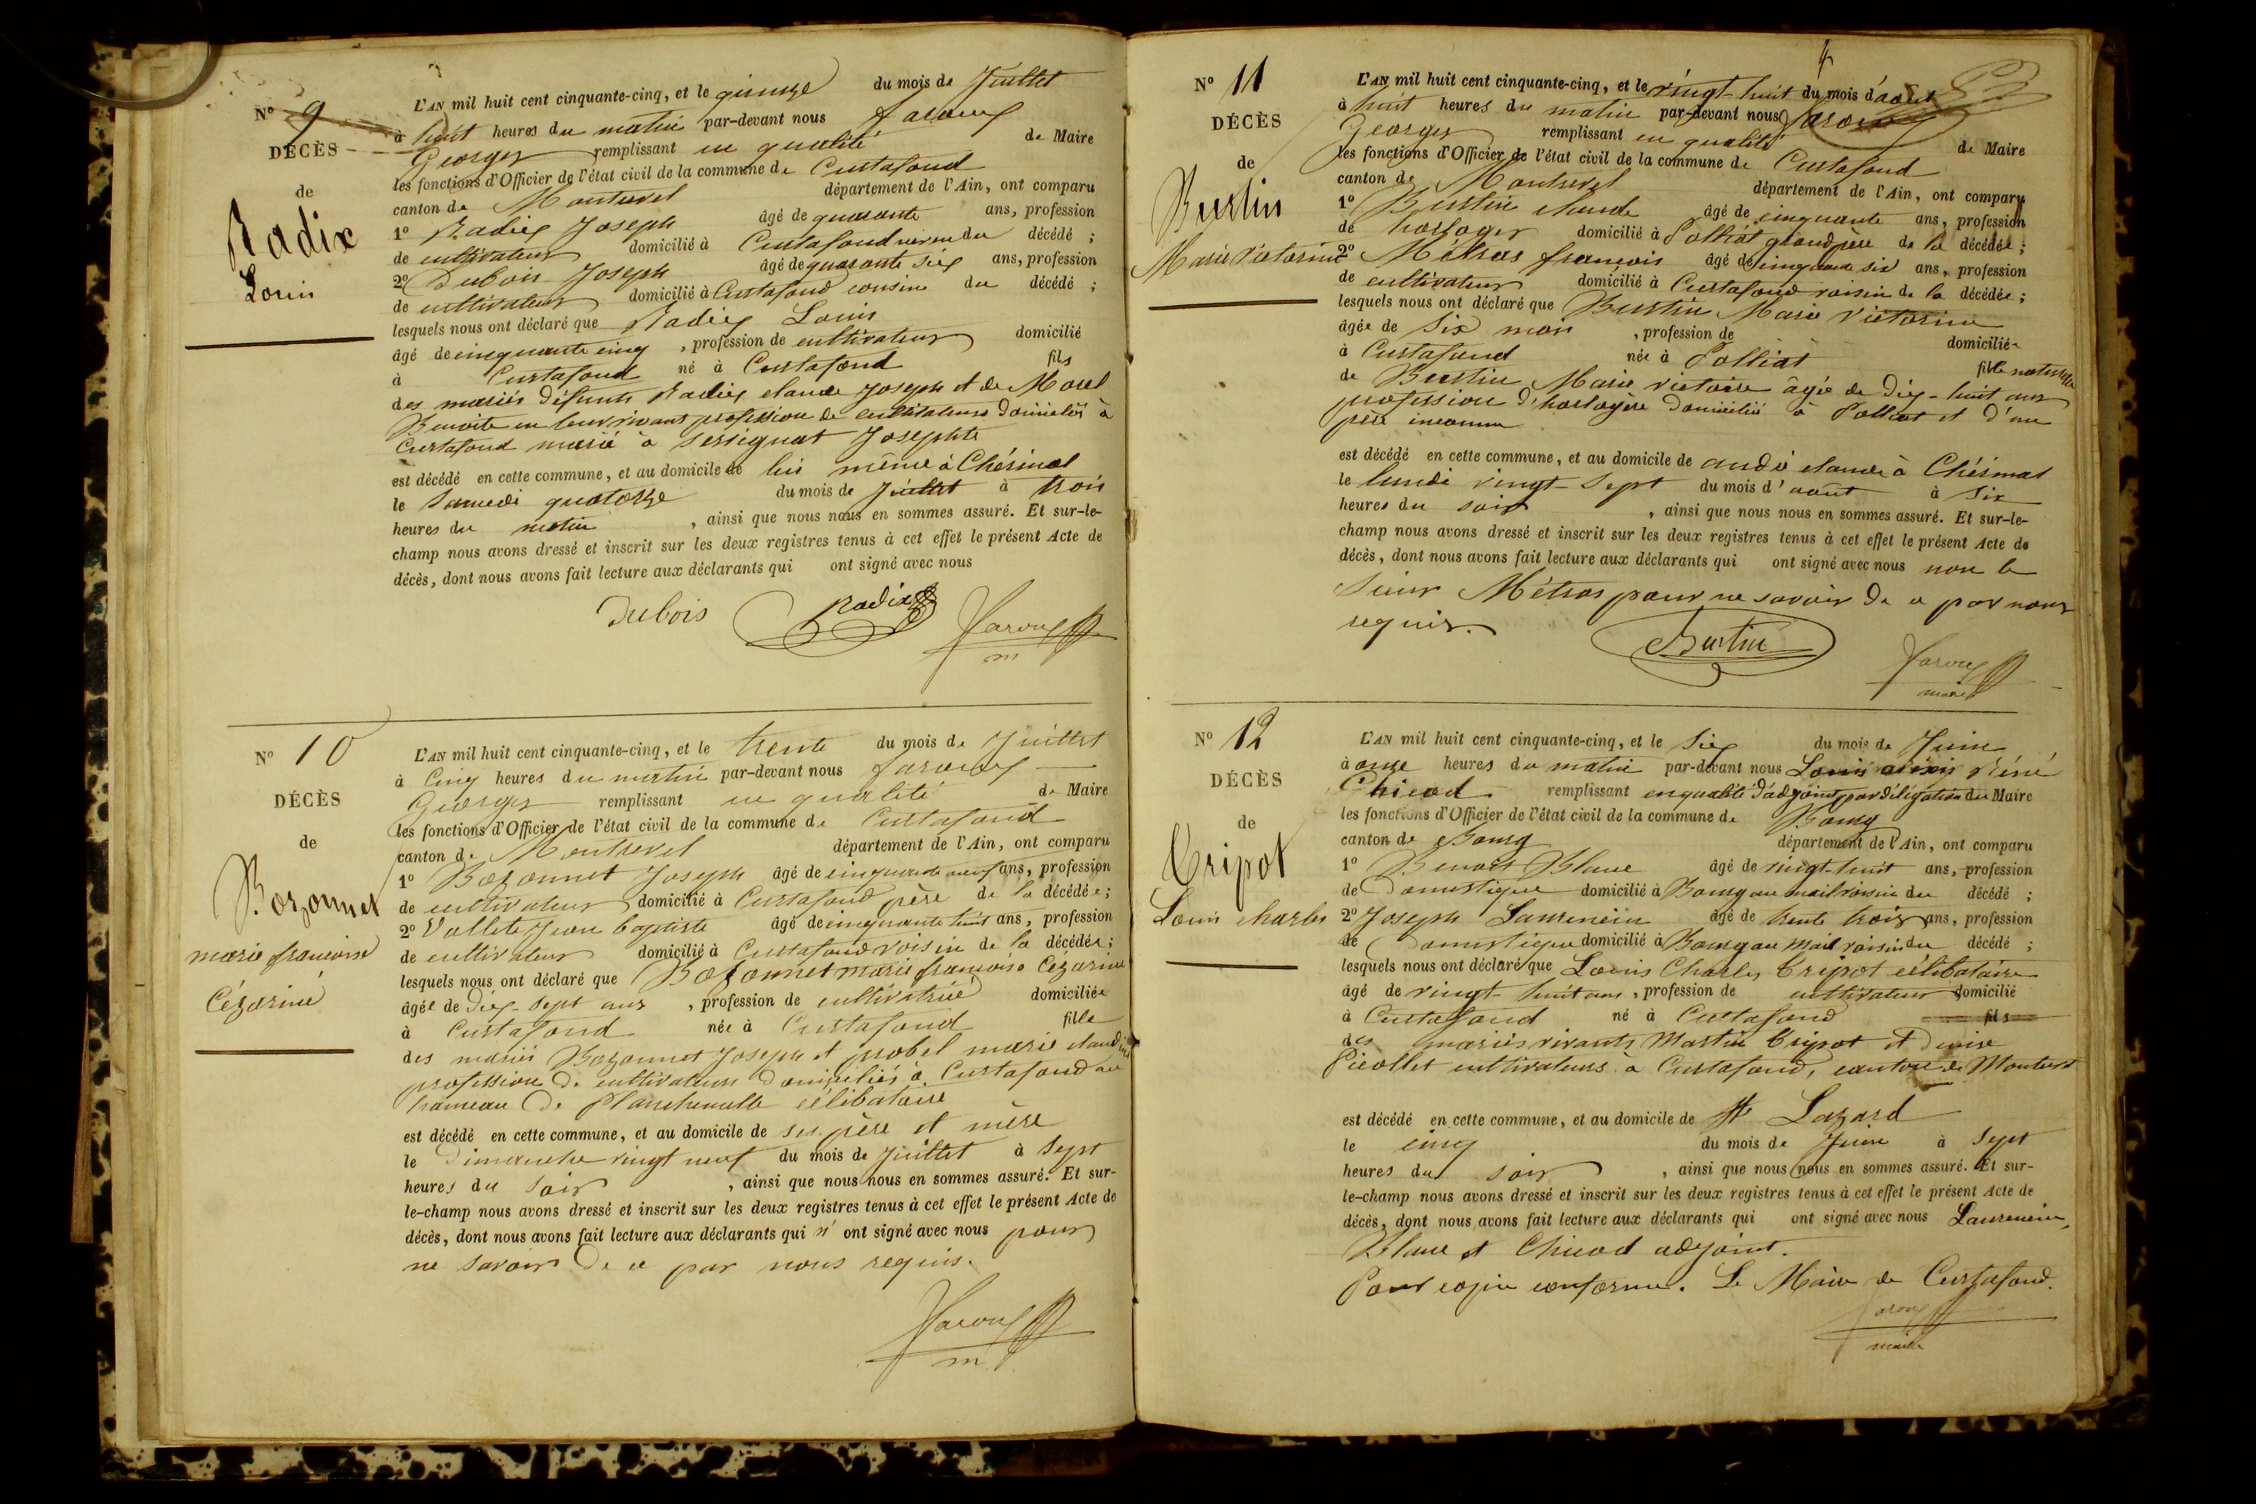 N° 9
DÉCÈS
de
Radix
Louis
L'AN mil huit cent cinquante-cinq, et le quinze du mois de Juillet
à huit heures du matin par-devant nous
Georges remplissant en qualité de Maire
les fonctions d'Officier de l'état civil de la commune de Curtafond
canton de Montrevel département de l'Ain, ont comparu
1° Radix Joseph âgé de quarante ans, profession
de cultivateur domicilié à Curtafond du décédé ;
2° Dubois Joseph âgé de quarante six ans, profession
de cultivateur domicilié à Curtafond cousin du décédé ;
lesquels nous ont déclaré que Radix Louis
âgé de cinquante cinq, profession de cultivateur domicilié
à Curtafond né à Curtafond fils
des mariés défunts Radix claude Joseph et de Morel
Benoite en leur vivant profession de cultivateurs domiciliés à
Curtafond marié à Josephte
est décédé en cette commune, et au domicile de lui même à Chésinat
le Samedi quatorze du mois de Juillet à trois
heures du matin, ainsi que nous nous en sommes assuré. Et sur-le-
champ nous avons dressé et inscrit sur les deux registres tenus à cet effet le présent Acte de
décès, dont nous avons fait lecture aux déclarants qui ont signé avec nous
Dubois Radix
m
N° 10
DÉCÈS
de
Bozonnet
marie francoise
Cézarine
L'AN mil huit cent cinquante-cinq, et le trente du mois de Juillet
à Cinq heures du matin par-devant nous
Georges remplissant en qualité de Maire
les fonctions d'Officier de l'état civil de la commune de Curtafond
canton de Montrevel département de l'Ain, ont comparu
1° Bozonnet Joseph âgé de cinquante neuf ans, profession
de cultivateur domicilié à Curtafond père de la décédée ;
2° Vallet Jean baptiste âgé de cinquante huit ans, profession
de cultivateur domicilié à Curtafond voisin de la décédée ;
lesquels nous ont déclaré que Bozonnet marie francoise Cézarine
âgée de dix-sept ans, profession de cultivatrice domiciliée
à Curtafond née à Curtafond fille
des mariés Bozonnet Joseph et probel marie claudine
profession de cultivateurs domiciliés à Curtafond au
hameau de célibataire
est décédé en cette commune, et au domicile de ses père et mère
le Dimanche vingt neuf du mois de Juillet à Sept
heures du Soir, ainsi que nous nous en sommes assuré. Et sur-
le-champ nous avons dressé et inscrit sur les deux registres tenus à cet effet le présent Acte de
décès, dont nous avons fait lecture aux déclarants qui n' ont signé avec nous pour
ne savoir de ce par nous requis.
m
N° 11
DÉCÈS
de
Burtin
Marie Victorine
L'AN mil huit cent cinquante-cinq, et le vingt-huit du mois d'août
à huit heures du matin par-devant nous
Georges remplissant en qualité de Maire
les fonctions d'Officier de l'état civil de la commune de Curtafond
canton de Montrevel département de l'Ain, ont comparu
1° Burtin claude âgé de cinquante ans, profession
de horloger domicilié à Polliat grand père de la décédée ;
2° Métras francois âgé de cinquante six ans, profession
de cultivateur domicilié à Curtafond voisin de la décédée ;
lesquels nous ont déclaré que Burtin Marie Victorine
âgée de Six mois, profession de domiciliée
à Curtafond née à Polliat fille naturelle
de Burtin Marie victoire âgée de dix-huit ans
profession d'horlogère domiciliée à Polliat et d'un
père inconnu
est décédé en cette commune, et au domicile de claude à Chésinat
le lundi vingt-Sept du mois d'août à Six
heures du soir, ainsi que nous nous en sommes assuré. Et sur-le-
champ nous avons dressé et inscrit sur les deux registres tenus à cet effet le présent Acte de
décès, dont nous avons fait lecture aux déclarants qui ont signé avec nous non le
Sieur Métras pour ne savoir de ce par nous
requis.
Burtin
maire
N° 12
DÉCÈS
de
Tripot
Louis charles
L'AN mil huit cent cinquante-cinq, et le Six du mois de Juin
à onze heures du matin par-devant nous Louis Réné
Chicod remplissant en qualité d'adjoint par délégation du Maire
les fonctions d'Officier de l'état civil de la commune de Bourg
canton de Bourg département de l'Ain, ont comparu
1° Benoit Blanc âgé de vingt-huit ans, profession
de Domestique domicilié à Bourg au mail voisin du décédé ;
2° Joseph Laurencin âgé de trente trois ans, profession
de Domestique domicilié à Bourg au mail voisin du décédé ;
lesquels nous ont déclaré que Louis Charles Tripot célibataire
âgé de vingt-huit ans, profession de cultivateur domicilié
à Curtafond né à Curtafond fils
des mariés vivants Martin Tripot et Denise
Picollet cultivateurs à Curtafond, canton de Montrevel
est décédé en cette commune, et au domicile de St Lazard
le cinq du mois de Juin à Sept
heures du soir, ainsi que nous nous en sommes assuré. Et sur-
le-champ nous avons dressé et inscrit sur les deux registres tenus à cet effet le présent Acte de
décès, dont nous avons fait lecture aux déclarants qui ont signé avec nous Laurencin,
Blanc et Chicod adjoint.
Pour copie conforme. Le Maire de Curtafond.
maire